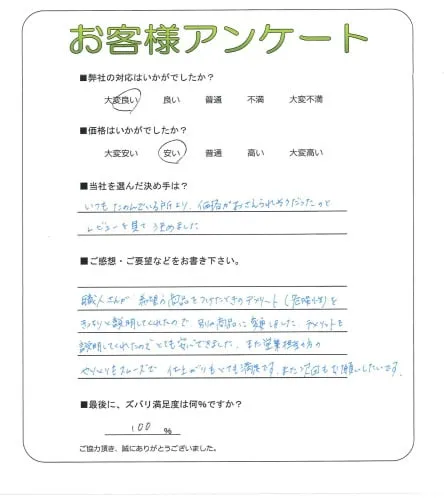 お客様アンケート
■弊社の対応はいかがでしたか?
大変良い 良い 普通 不満 大変不満
■価格はいかがでしたか?
大変安い 安い 普通 高い 大変高い
■当社を選んだ決め手は?
いつもたのんでいる所より、価格がおさえられそうだったのと
レビューを見て決めました
■ご感想・ご要望などをお書き下さい。
職人さんが 希望の商品をつけたときのデメリット()を
きっちりと説明してくれたので、別の商品に変更しました。デメリットを
説明してくれたのでとても安心できました。また営業担当の方の
やりとりもスムーズで 仕上がりもとても満足です。また次回もお願いしたいです。
■最後に、ズバリ満足度は何%ですか?
100 %
ご協力頂き、誠にありがとうございました。